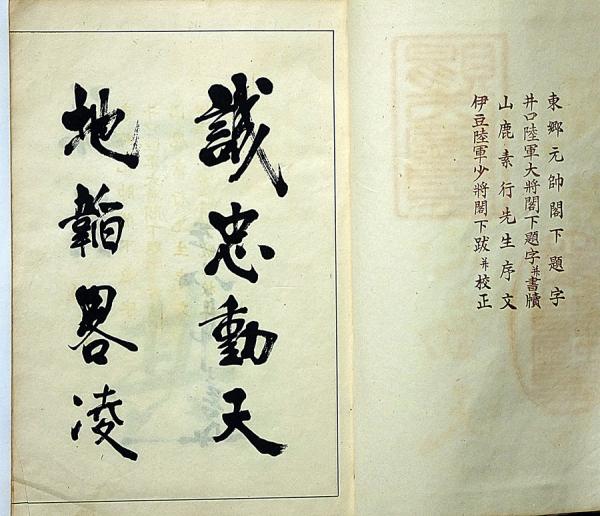 東郷元帥閣下題字
井口陸軍大將閣下題字并書牘
山鹿素行先生序文
伊豆陸軍少將閣下跋并校正
誠忠動天
地韜畧凌